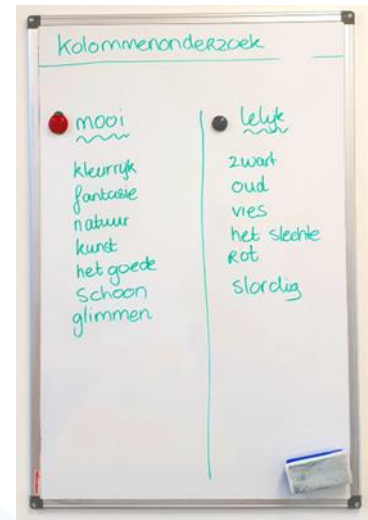 kolommenonderzoek
mooi
kleurrijk
fantasie
natuur
kunst
het goede
schoon
glimmen
lelijk
zwart
oud
vies
het slechte
rot
slordig